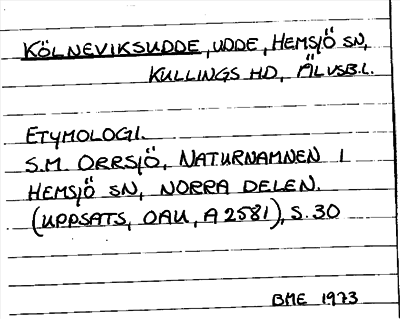 KÖLNEVIKSUDDE, UDDE, HEMSJÖ SN,
KULLINGS HD, ÄLVSB.L.
ETYMOLOGI.
S.M. ORRSJÖ, NATURNAMNEN I
HEMSJÖ SN, NORRA DELEN.
(UPPSATS, OAU, A 2581), S. 30
BME 1973